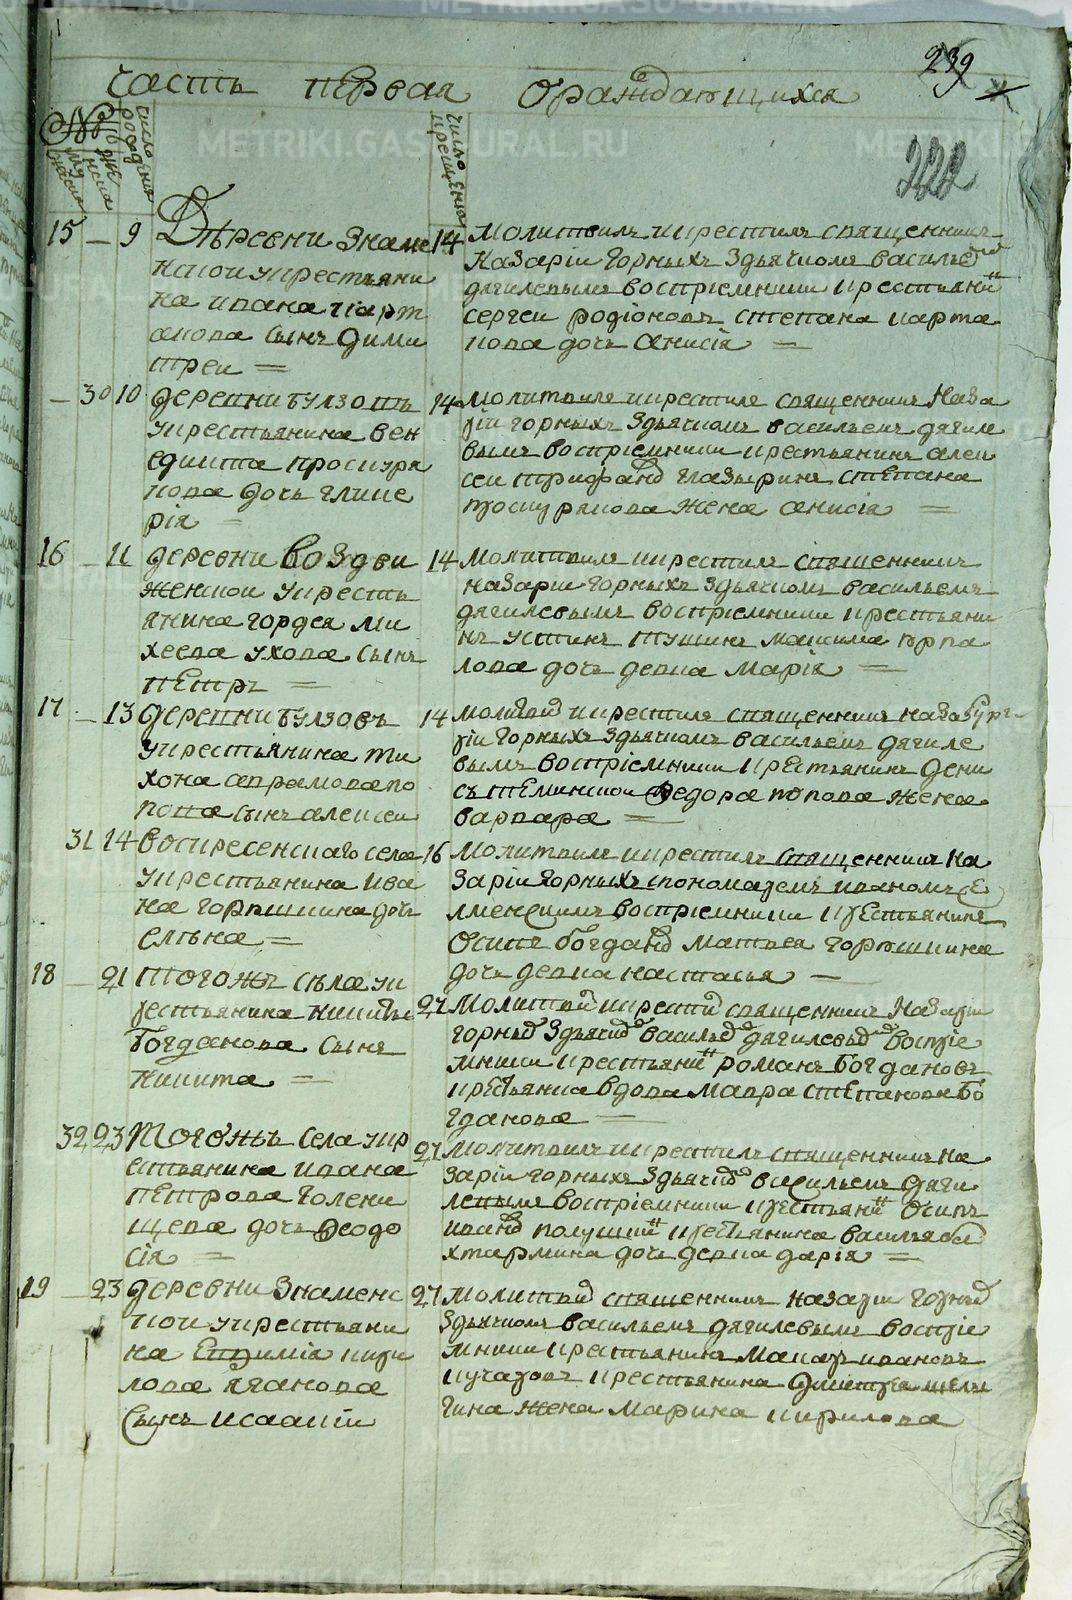 239
часть первая ораждающихся
222
число рождения
число крещения
15 9 Деревни Знаме
нской укрестьяни
на ивана карт
анова сынъ дими
треи
14 Молитвилъ икрестилъ священникъ
Назаріи Горныхъ здьячкомъ василье
дягилевымъ воспріемники крестьяни
сергеи родіоновъ степана карта
нова дочь анисія
30 10 деревни Бузовъ
укрестьянина вен
едикта проскуря
кова дочь глике
рія
14 Молитвилъ икрестилъ священникъ Наза
ріи горныхъ здьячкомъ васильемъ дягиле
вымъ воспріемники крестьянинъ алек
сеи трифано глазыринъ степана
проскурякова жена анисія
16 11 деревни Воздви
женской укресть
янина гордея ми
хеева ухова сынъ
петръ
14 Молитвилъ икрестилъ священникъ
назаріи горныхъ здьячкомъ васильемъ
дягилевымъ воспріемники крестьяни
нъ устинъ тушинъ максима
лова дочь девка марія
17 13 деревни Бузовъ
укрестьянина ти
хона аврамова по
пова сынъ алексеи
14 Молитви икрестилъ священникъ наза
ріи горныхъ здьячкомъ васильемъ дягиле
вымъ воспріемники крестьянинъ дени
съ теминской Ѳедора попова жена
варвара
31 14 воскресенскаго села
укрестьянина ива
на горвшкина дочь
елѣна
16 Молитвилъ икрестилъ священникъ на
заріи горныхъ спономаремъ иваномъ
воспріемники крестьянинъ
осипъ богдано матвея горвшкина
дочь девка настасья
18 21 тогожъ села ук
рестьянина никиты
Богданова сынъ
никита
27 Молитви икрести священникъ Назаріи
горны здьячко василье дягилевы воспріе
мники крестьяни романъ богдановъ
крестьянка вдова мавра степанова бо
гданова
32 23 тогожъ села укр
естьянина ивана
петрова голени
щева дочь Ѳеодо
сія
27 молитвилъ икрестилъ священникъ на
заріи горныхъ здьячко васильемъ дяги
левымъ воспріемники крестьяни осипъ
ивано крестьянина василья
дочь девка дарія
19 23 деревни Знаменс
кой укрестьяни
на Евфимія кири
лова
сынъ исаакіи
27 Молитви священникъ назаріи горны
здьячкомъ васильемъ дягилевымъ воспріе
мники крестьянинъ макаръ ивановъ
крестьянина дмитрея
гина жена марина кирилова